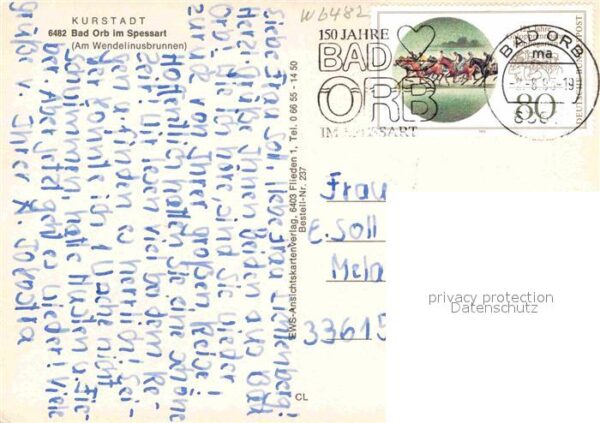 W6482
KURSTADT
6482 Bad Orb im Spessart
(Am Wendelinusbrunnen)
150 JAHRE
BAD
ORB
IM SPESSART
BAD ORB
ma
-19
DEUTSCHE BUNDESPOST
80
Liebe Frau Soll, liebe Frau
Herzl. Grüße Ihnen Beiden aus Bad
Orb! Ich höre, sind Sie wieder
zurück von Ihrer großen Reise!
Hoffentlich hatten Sie eine schöne
Zeit! Wir lesen viel bei dem Re-
gen u. finden es herrlich! Lei-
der konnte ich 1 Woche nicht
schwimmen, hatte Husten u. Fie-
ber. Aber jetzt geht es wieder! Viele
Grüße v. Ihrer
EWS-Ansichtskartenverlag, 6403 Flieden 1, Tel. 0 66 55 - 14 50
Bestell-Nr. 237
CL
Frau
E. Soll
Mela
33615
privacy protection
Datenschutz